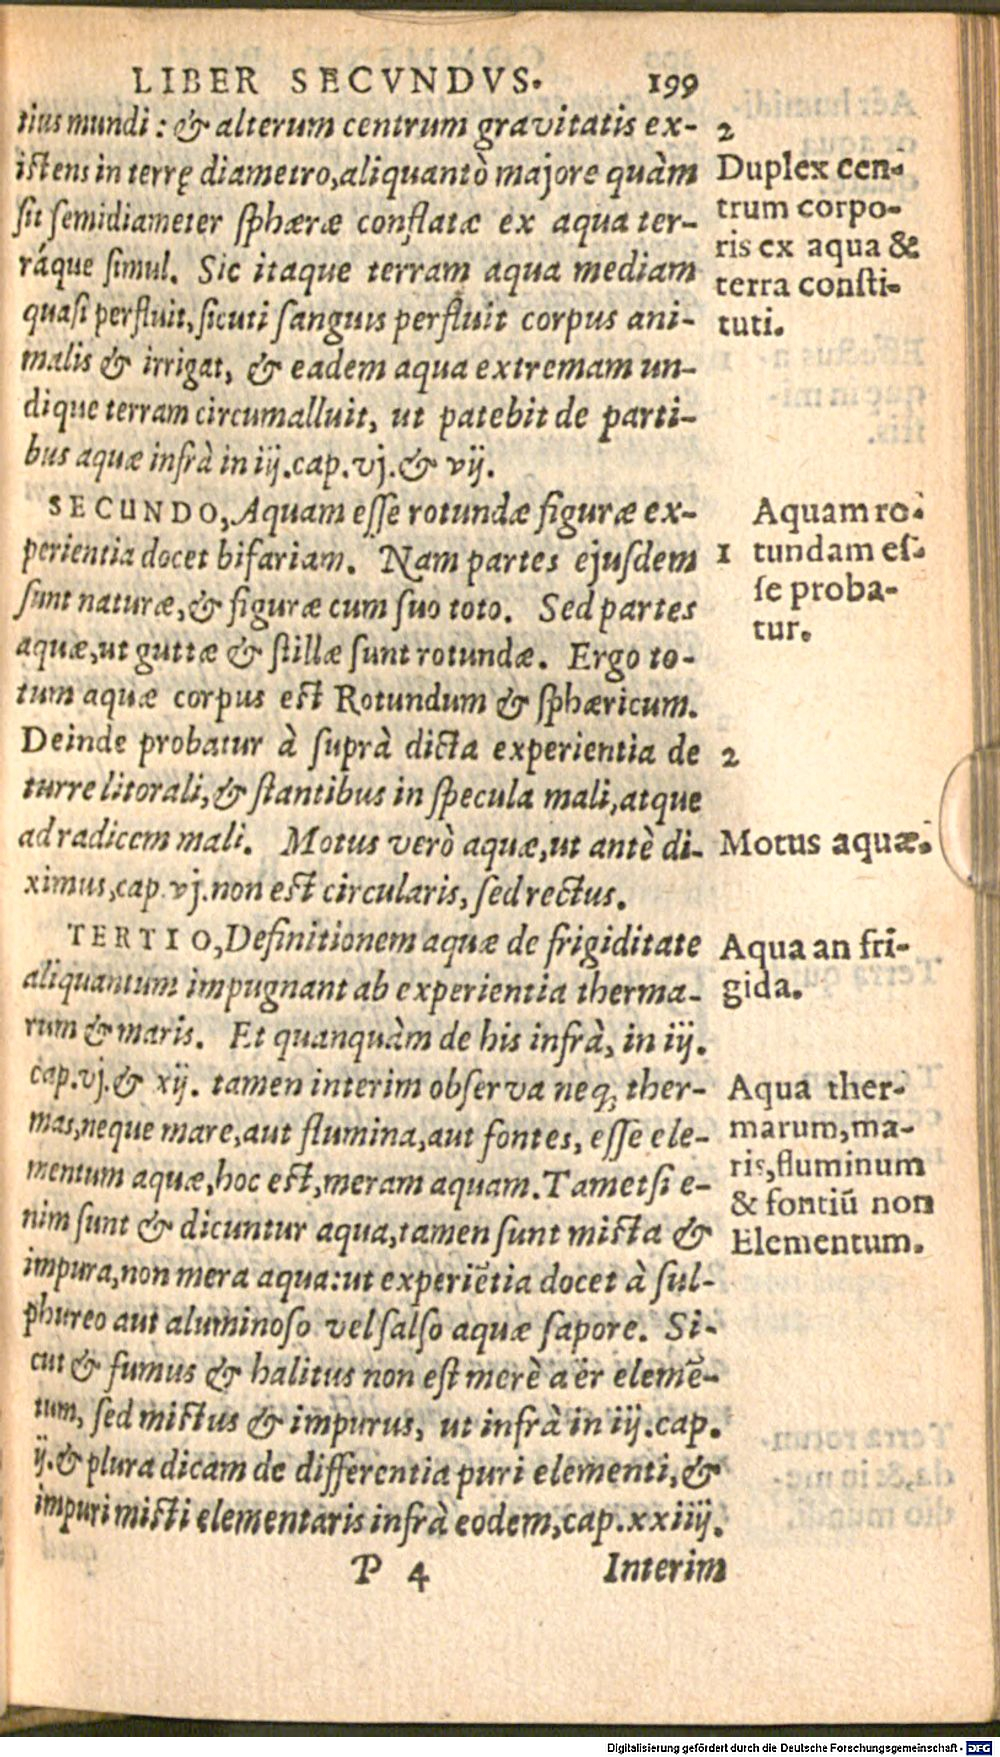 LIBER SECVNDVS. 199
tius mundi: & alterum centrum gravitatis ex-
istens in terrę diametro, aliquantò majore quàm
sit semidiameter sphæræ conflatæ ex aqua ter-
ráque simul. Sic itaque terram aqua mediam
quasi perfluit, sicuti sanguis perfluit corpus ani-
malis & irrigat, & eadem aqua extremam un-
dique terram circumalluit, ut patebit de parti-
bus aquæ infrà in iij. cap. vj. & vij.
2
Duplex cen-
trum corpo-
ris ex aqua &
terra consti-
tuti.
SECUNDO, Aquam esse rotundæ figuræ ex-
perientia docet bifariam. Nam partes ejusdem
sunt naturæ, & figuræ cum suo toto. Sed partes
aquæ, ut guttæ & stillæ sunt rotundæ. Ergo to-
tum aquæ corpus est Rotundum & sphæricum.
Deinde probatur à suprà dicta experientia de
turre litorali, & stantibus in specula mali, atque
ad radicem mali. Motus verò aquæ, ut antè di-
ximus, cap. vj. non est circularis, sed rectus.
Aquam ro-
1 tundam es-
se proba-
tur.
2
Motus aquæ.
TERTIO, Definitionem aquæ de frigiditate
aliquantum impugnant ab experientia therma-
rum & maris. Et quanquàm de his infrà, in iij.
cap. vj. & xij. tamen interim observa neq; ther-
mas, neque mare, aut flumina, aut fontes, esse ele-
mentum aquæ, hoc est, meram aquam. Tametsi e-
nim sunt & dicuntur aqua, tamen sunt mista &
impura, non mera aqua: ut experiētia docet à sul-
phureo aut aluminoso vel salso aquæ sapore. Si-
cut & fumus & halitus non est merè aër elemē-
tum, sed mictus & impurus, ut infrà in iij. cap.
ij. & plura dicam de differentia puri elementi, &
impuri misti elementaris infrà eodem, cap. xxiiij.
Aqua an fri-
gida.
Aqua ther-
marum, ma-
ris, fluminum
& fontiū non
Elementum.
P 4 Interim
Digitalisierung gefördert durch die Deutsche Forschungsgemeinschaft - DFG